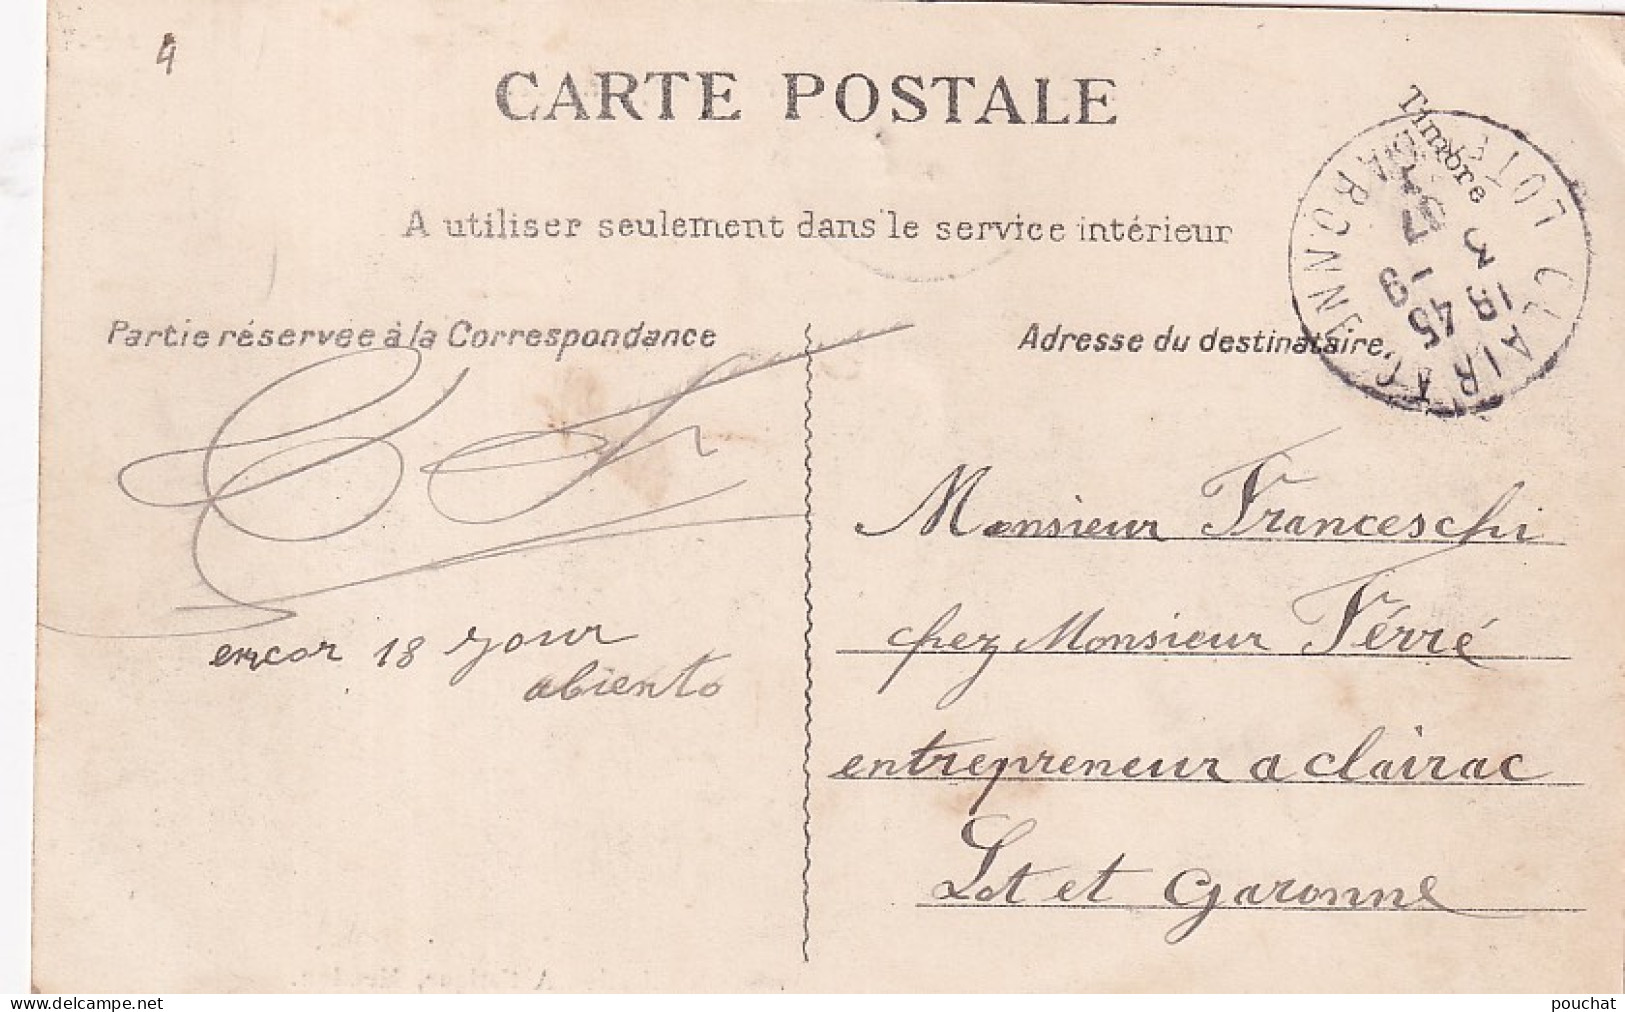 4
CARTE POSTALE
Timbre
A utiliser seulement dans le service intérieur
CLAIRAC LOT ET GARONNE
18 45
3 - 9
07
Partie réservée à la Correspondance
encor 18 jour
abiento
Adresse du destinataire.
Monsieur Franceschi
chez Monsieur Férré
entrepreneur a clairac
Lot et Garonne
pouchat